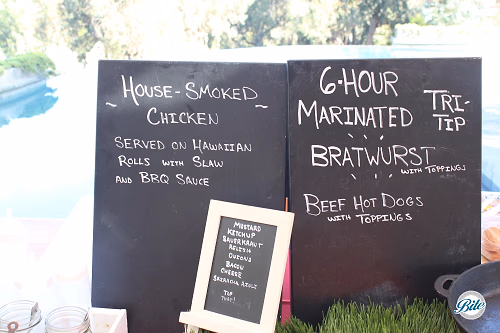 ~ House-Smoked ~
Chicken
Served on Hawaiian
Rolls with Slaw
and BBQ Sauce
6-Hour
Marinated
Tri-
Tip
Bratwurst
with Toppings
Beef Hot Dogs
with Toppings
Mustard
Ketchup
Sauerkraut
Relish
Onions
Bacon
Cheese
Sriracha Aioli
Top
That!
Bite